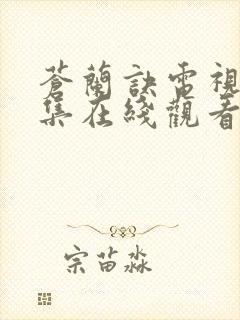 蒼蘭訣電視
集在綫觀看
宗苗淼